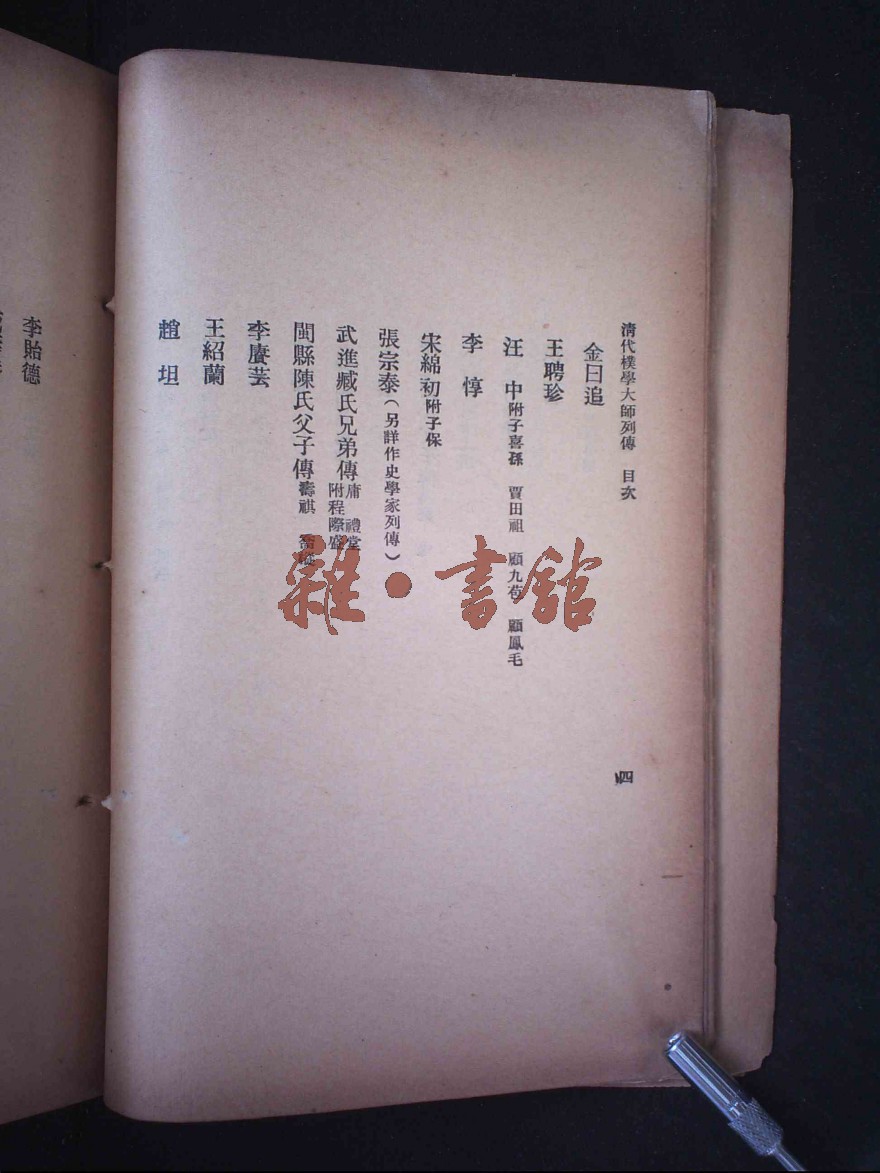 清代樸學大師列傳　目次
四
金曰追
王聘珍
汪　中附子喜孫　賈田祖　顧九苞　顧鳳毛
李　惇
宋綿初附子保
張宗泰（另詳作史學家列傳）
武進臧氏兄弟傳庸　禮堂
附程際盛
閩縣陳氏父子傳壽祺　喬樅
李賡芸
王紹蘭
趙　坦
李貽德
雜·書館